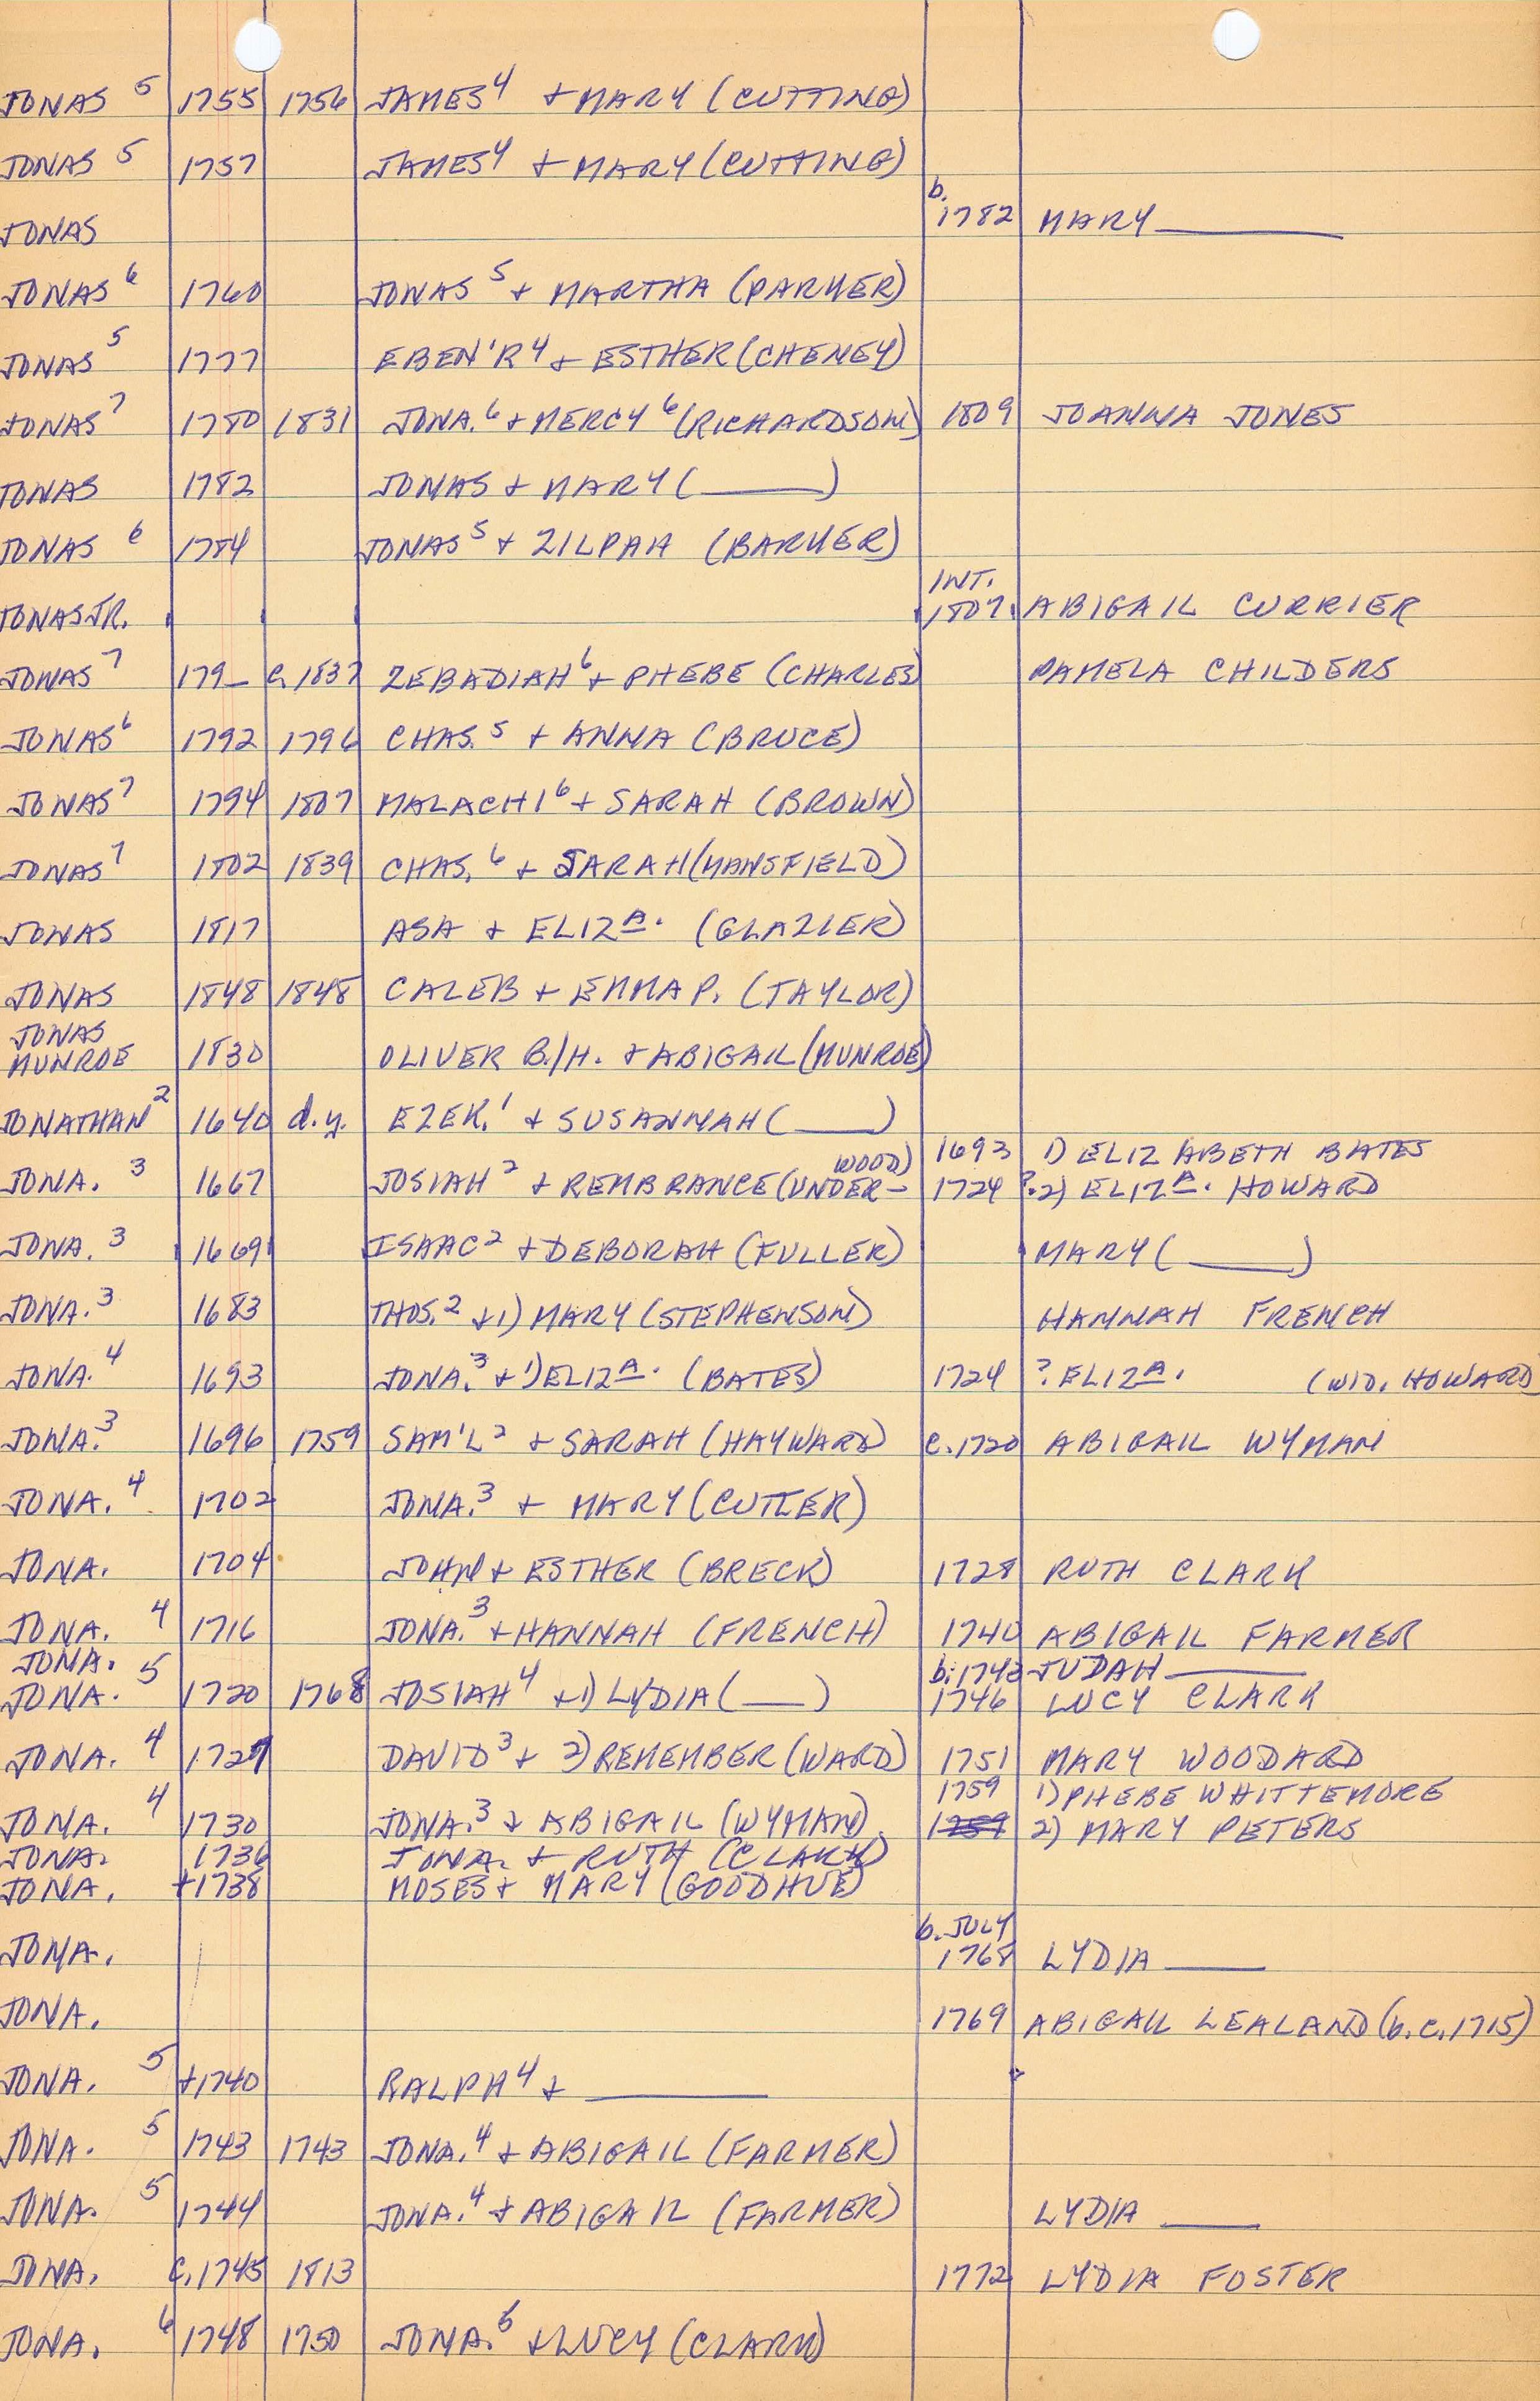 JONAS 5 1755 1756 JAMES 4 + MARY (CUTTING)
JONAS 5 1757 JAMES 4 + MARY (CUTTING)
b.
JONAS 1782 MARY
JONAS 6 1760 JONAS 5 + MARTHA (PARKER)
JONAS 5 1777 EBEN'R 4 + ESTHER (CHENEY)
JONAS 7 1780 1831 JONA. 6 + MERCY 6 (RICHARDSON) 1809 JOANNA JONES
JONAS 1782 JONAS + MARY ( )
JONAS 6 1784 JONAS 5 + ZILPAH (BARKER)
INT.
JONAS JR. 1807 ABIGAIL CURRIER
JONAS 7 179_ C. 1837 ZEBADIAH 6 + PHEBE (CHARLES) PAMELA CHILDERS
JONAS 6 1792 1796 CHAS. 5 + ANNA (BRUCE)
JONAS 7 1794 1807 MALACHI 6 + SARAH (BROWN)
JONAS 7 1802 1839 CHAS. 6 + SARAH (MANSFIELD)
JONAS 1817 ASA + ELIZA. (GLAZIER)
JONAS 1848 1848 CALEB + EMMA P. (TAYLOR)
JONAS
MUNROE 1830 OLIVER B./H. + ABIGAIL (MUNROE)
JONATHAN 2 1640 d.y. EZEK. 1 + SUSANNAH ( )
WOOD) 1693 1) ELIZABETH BATES
JONA. 3 1667 JOSIAH 2 + REMBRANCE (UNDER- 1724 ?.2) ELIZA. HOWARD
JONA. 3 1669 ISAAC 2 + DEBORAH (FULLER) MARY ( )
JONA. 3 1683 THOS. 2 + 1) MARY (STEPHENSON) HANNAH FRENCH
JONA. 4 1693 JONA. 3 + 1) ELIZA. (BATES) 1724 ? ELIZA. (WID. HOWARD)
JONA. 3 1696 1759 SAM'L 2 + SARAH (HAYWARD) C. 1720 ABIGAIL WYMAN
JONA. 4 1702 JONA. 3 + MARY (CUTLER)
JONA. 1704 JOHN + ESTHER (BRECK) 1728 RUTH CLARK
JONA. 4 1716 JONA. 3 + HANNAH (FRENCH) 1740 ABIGAIL FARMER
JONA. b. 1743 JUDAH
JONA. 5 1720 1768 JOSIAH 4 + 1) LYDIA ( ) 1746 LUCY CLARK
JONA. 4 1727 DAVID 3 + 2) REMEMBER (WARD) 1751 MARY WOODARD
1759 1) PHEBE WHITTEMORE
JONA. 4 1730 JONA. 3 + ABIGAIL (WYMAN) 2) MARY PETERS
JONA. 1736 JONA. + RUTH (CLARK)
JONA. +1738 MOSES + MARY (GOODHUE)
b. JULY
JONA. 1768 LYDIA
JONA. 1769 ABIGAIL LEALAND (b. c. 1715)
JONA. 5 +1740 RALPH 4 +
JONA. 5 1743 1743 JONA. 4 + ABIGAIL (FARMER)
JONA. 5 1744 JONA. 4 + ABIGAIL (FARMER) LYDIA
JONA. C. 1745 1813 1772 LYDIA FOSTER
JONA. 6 1748 1750 JONA. 5 + LUCY (CLARK)